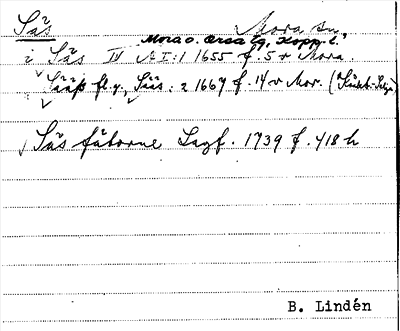 Säs Mora sn,
Mora o. Orsa tg, Kopp. l.
i Säs IV AI:1 1655 f. 5 v Mora.
Sääs fl. g. Säs : 2 1667 f. 14 v Mor.
Säs fåborne Lagf. 1739 f. 418 h
B. Lindén